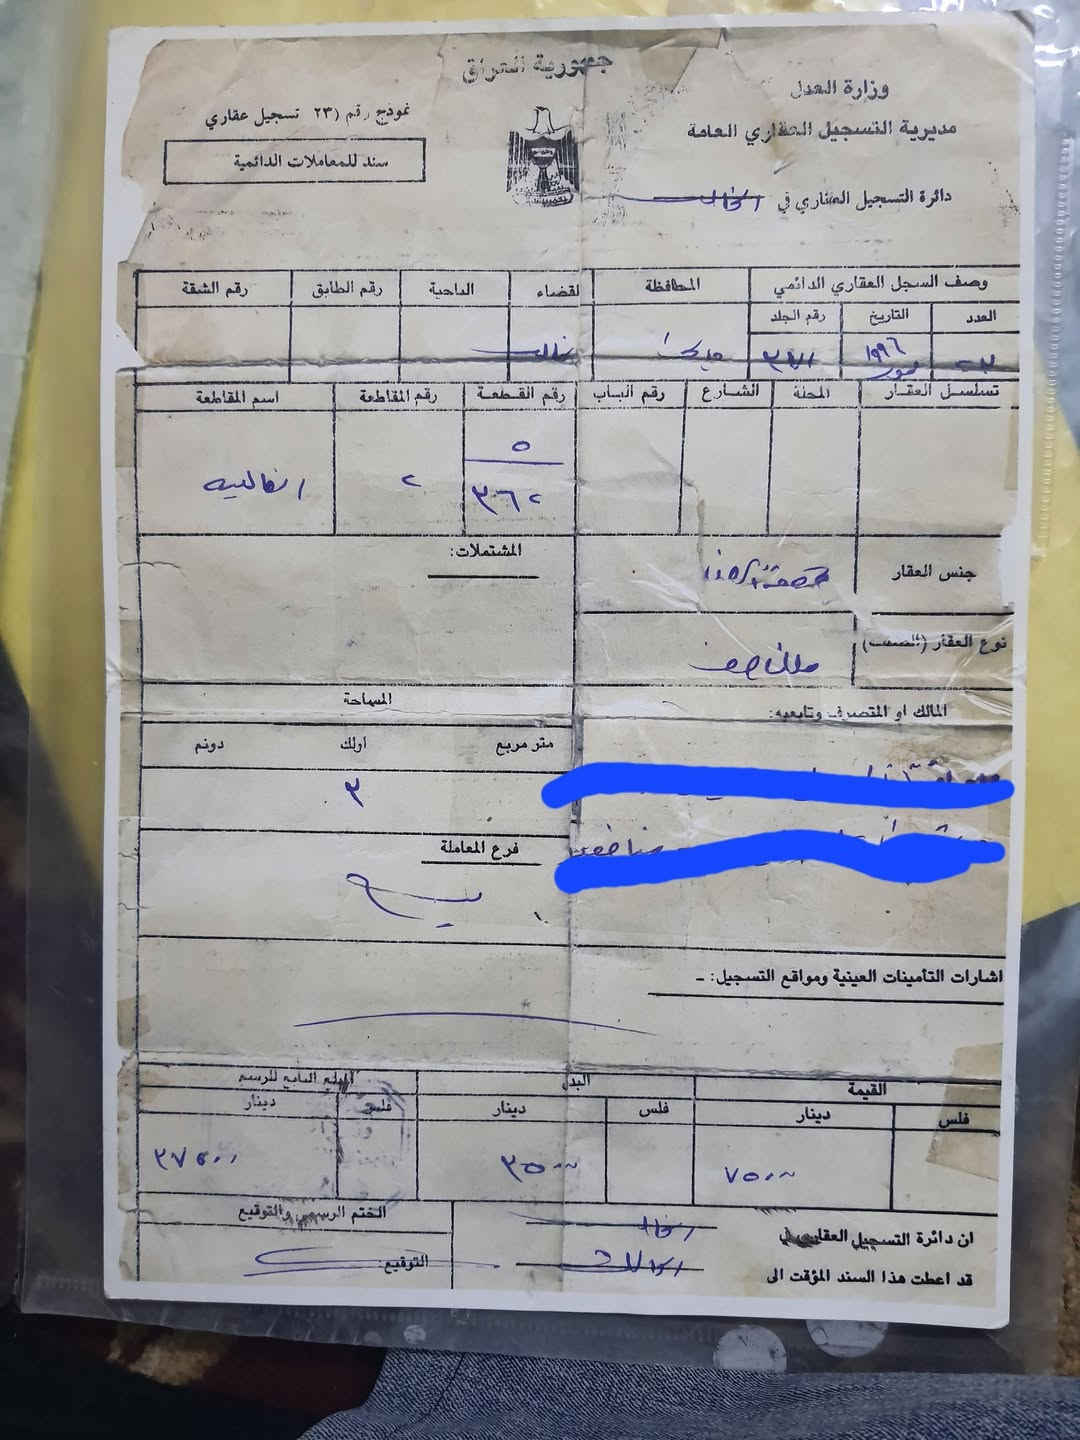 جمهورية العراق
وزارة العدل
مديرية التسجيل العقاري العامة
دائرة التسجيل العقاري في الخالص
نموذج رقم (٢٣ تسجيل عقاري
سند للمعاملات الدائمية
وصف السجل العقاري الدائمي
المحافظة
القضاء
الناحية
رقم الطابق
رقم الشقة
العدد
التاريخ
رقم الجلد
تموز ١٩٩٦
ديالى
تسلسل العقار
المحلة
الشارع
رقم الباب
رقم القطعة
رقم المقاطعة
اسم المقاطعة
٥
٣٦٢
٢
جنس العقار
المشتملات:
نوع العقار (الصنف)
ملك صرف
المالك او المتصرف وتابعيه:
المساحة
متر مربع
اولك
دونم
٣
مناصفة
فرع المعاملة
بيع
اشارات التأمينات العينية ومواقع التسجيل: -
القيمة
البدل
المبلغ التابع للرسم
فلس
دينار
فلس
دينار
فلس
دينار
٧٥٠٠٠
٣٥٠٠٠
٣٧٥٠٠
ان دائرة التسجيل العقاري في الخالص
قد اعطت هذا السند المؤقت الى
الختم الرسمي والتوقيع
التوقيع: